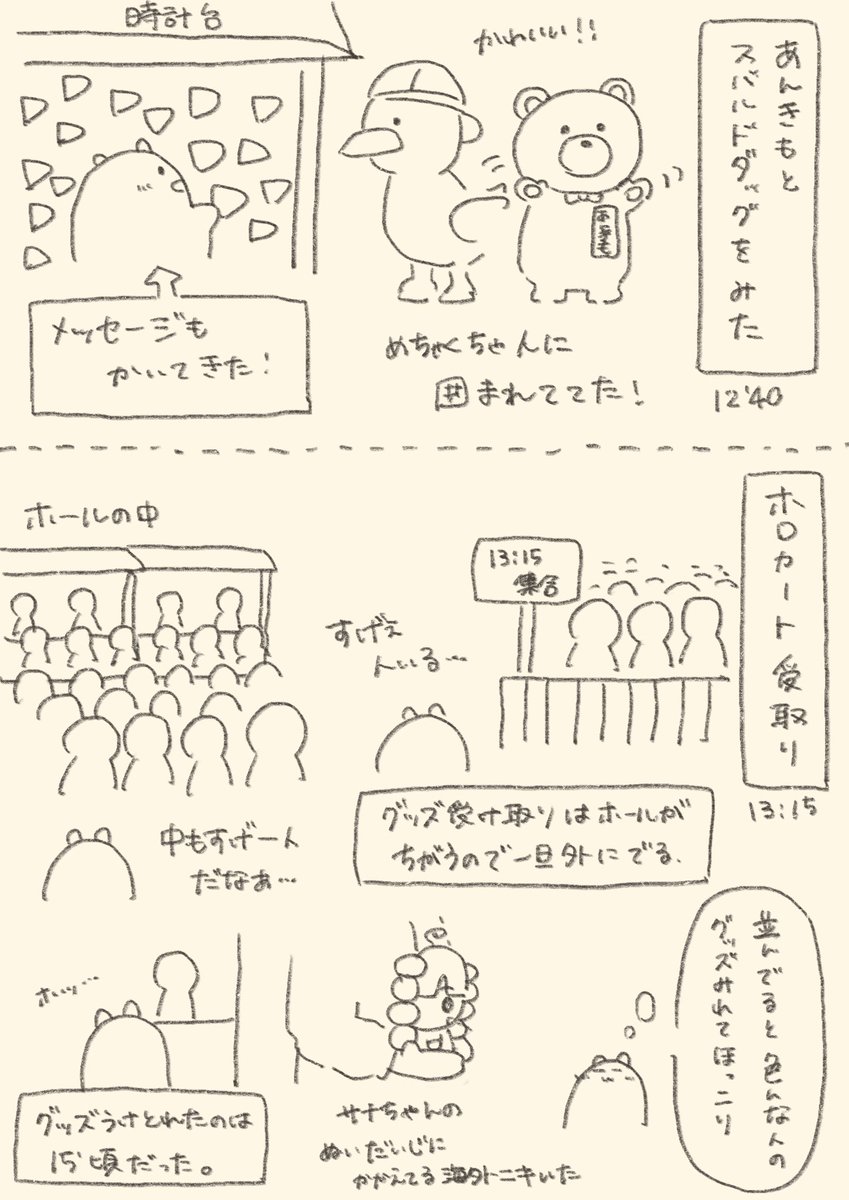 あんきもと
スバルドダックをみた
12'40
かわいい!!
めちゃくちゃ人に
囲まれててた!
時計台
メッセージも
かいてきた!
ホロカート受取り
13:15
13:15
集合
すげぇ
人いる…
グッズ受け取りはホールが
ちがうので一旦外にでる.
ホールの中
中もすげー人
だなぁ…
並んでると色んな人の
グッズみれてほっこり
サナちゃんの
ぬいだいじに
かかえてる海外ニキいた
ホッ…
グッズうけとれたのは
15'頃だった。